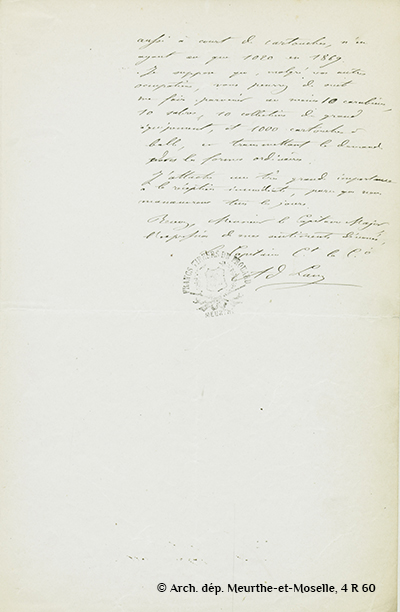 aussi à court de cartouches, n'en
ayant eu que 1020 en 1869
Je suppose que, malgré vos autres
occupations, vous pourrez de suite
me faire parvenir au moins 10 carabines,
10 sabres, 10 collections de grand
équipement, et 1000 cartouches à
balle, en transmettant la demande
dans la forme ordinaire.
J'attache une très grande importance
à la réception immédiate, parce que nous
manœuvrons tous les jours
Recevez, Monsieur le Capitaine Major
l'expression de mes sentiments dévoués,
Le Capitaine Ct la Cie
FRANCS-TIREURS
MEURTHE
© Arch. dép. Meurthe-et-Moselle, 4 R 60